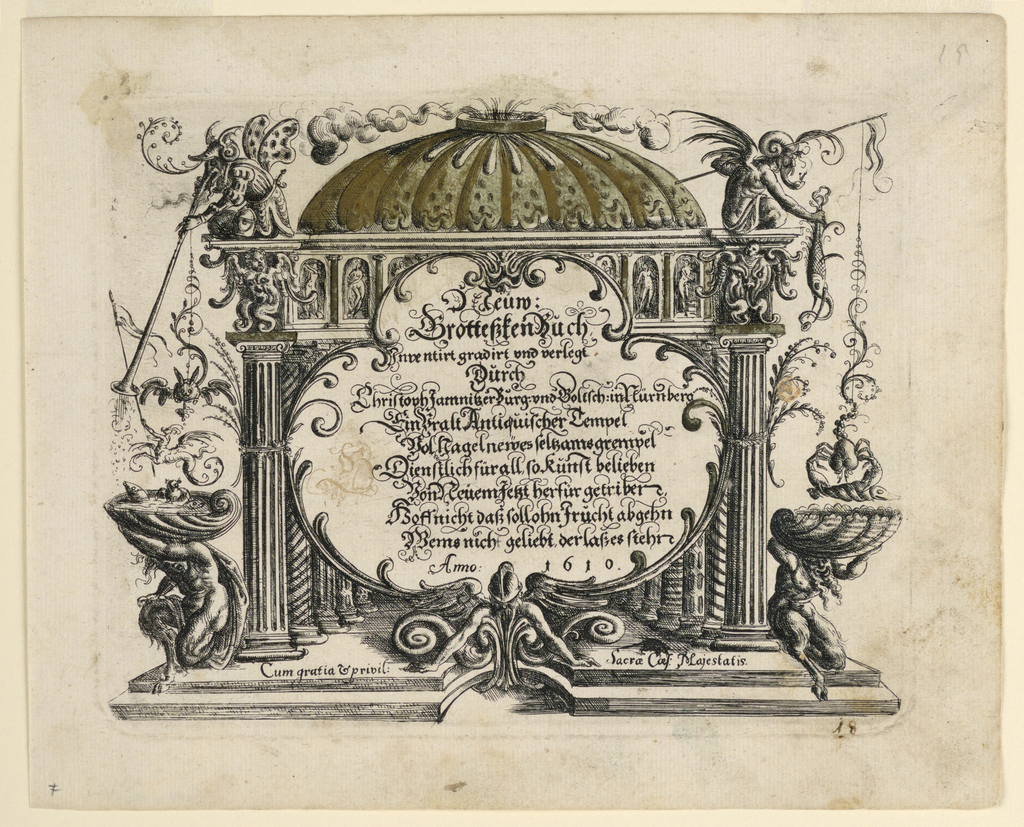 D Neüw:
Grotteßken Büch
Inventirt gradirt vnd verlegt
Dürch
Christoph Jamnitzer Bürg vnd Goltsch: in Nürnberg
Ein Vralt Antiquischer Tempel
Vol Nagelnewes seltzams grempel
Dienstlich für all, so Künst belieben
Von Neüem Jetzt herfür getriben
Hoff nicht daß soll ohn Frücht abgehn
Wems nicht geliebt, der laß es stehn
Anno: 1610.
Cum gratia & privil:
Sacræ Cæs: Majestatis.
18